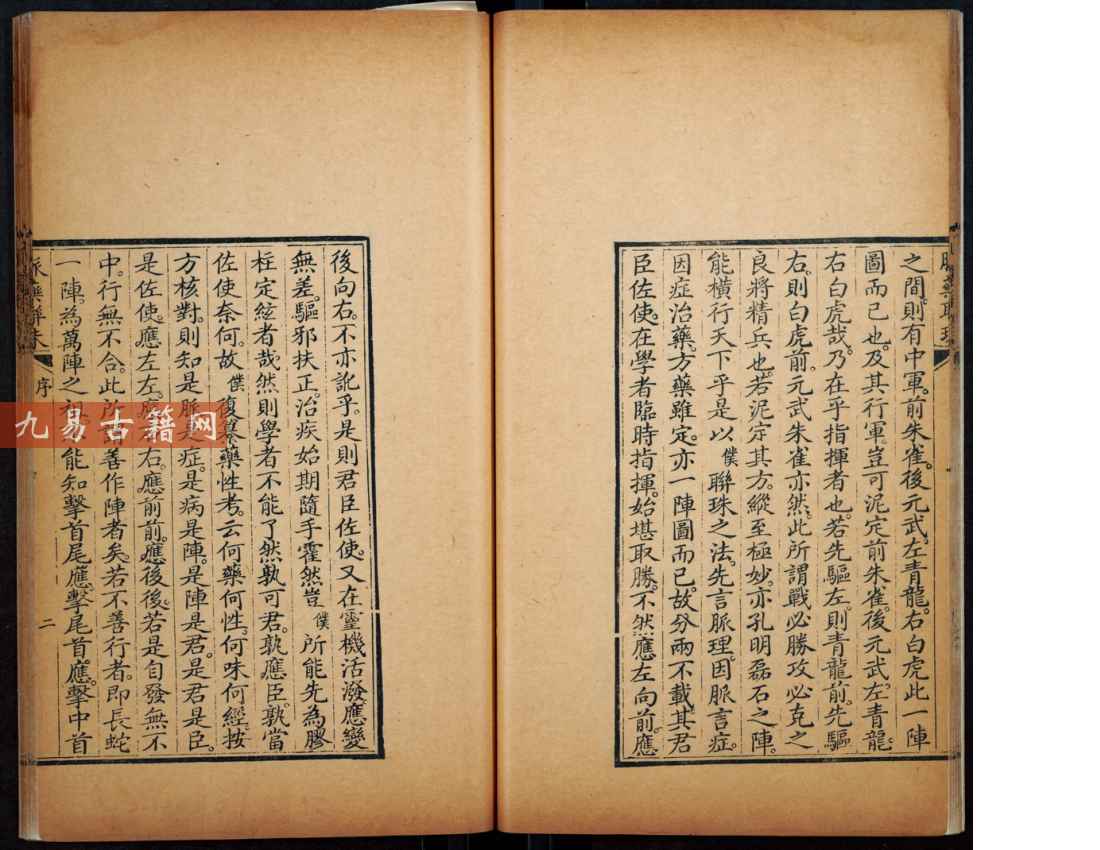 之間。則有中軍。前朱雀。後元武左青龍。右白虎此一陣
圖而已也。及其行軍。豈可泥定前朱雀。後元武。左青龍。
右白虎哉。乃在乎指揮者也。若先驅左。則青龍前。先驅
右。則白虎前。元武朱雀亦然。此所謂戰必勝攻必克之
良將精兵也。若泥定其方。縱至極妙。亦孔明磊石之陣。
能橫行天下乎是以僕聯珠之法。先言脈理。因脈言症。
因症治藥。方藥雖定。亦一陣圖而已。故分兩不載。其君
臣佐使。在學者臨時指揮。始堪取勝。不然應左向前。應
後向右。不亦訛乎。是則君臣佐使。又在靈機活潑。應變
無差。驅邪扶正。治疾始期隨手霍然豈僕所能先為膠
柱定絃者哉。然則學者不能了然。孰可君。孰應臣。孰當
佐使奈何。故僕復纂藥性考。云何藥何性。何味何經。按
方核對。則知是脈是症。是病是陣。是陣是君。是君是臣。
是佐使。應左左。應右右。應前前。應後後。若是自發無不
中。行無不合。此所謂善作陣者矣。若不善行者。即長蛇
一陣。為萬陣之祖能知擊首尾應。擊尾首應。擊中首
脈藥聯珠
序
二
九易古籍网